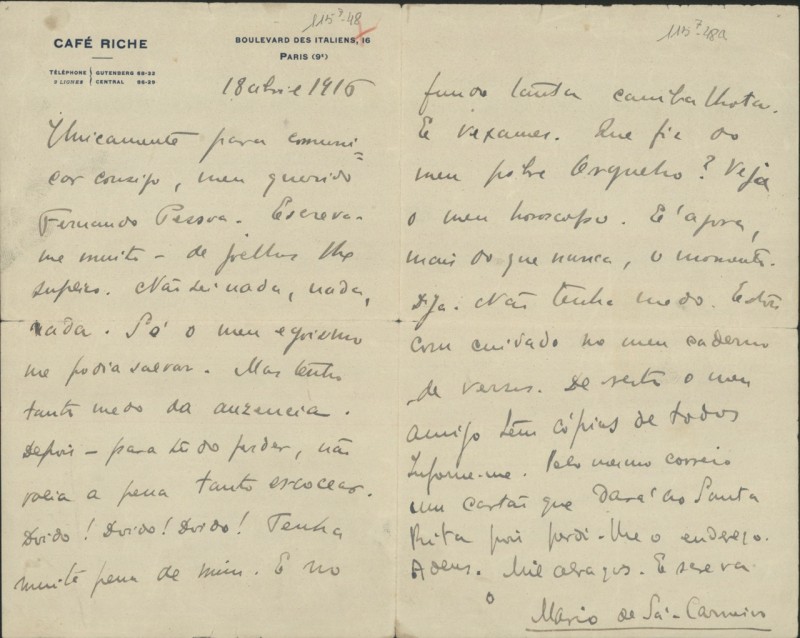 115⁷-48
CAFÉ RICHE
BOULEVARD DES ITALIENS, 16
PARIS (9e)
TÉLÉPHONE
2 LIGNES
GUTENBERG 68-22
CENTRAL 65-29
18 abril 1916
Unicamente para comuni=
car consigo, meu querido
Fernando Pessoa. Escreva-
me muito - de joelhos lhe
suplico. Não sei nada, nada,
nada. Só o meu egoismo
me podia salvar. Mas tenho
tanto medo da auzencia.
Depois - para tudo perder, não
valia a pena tanto escoucear.
Doido! Doido! Doido! Tenha
muita pena de mim. E no
115⁷-48a
fundo tanta cambalhota.
E vexames. Que fiz do
meu pobre Orgulho? Veja
o meu horoscopo. É agora,
mais do que nunca, o momento.
Diga. Não tenha medo. Estou
com cuidado no meu caderno
de versos. De resto o meu
amigo tem cópias de todos
Informe-me. Pelo mesmo correio
um cartão que dará ao Santa
Rita pois perdi-lhe o endereço.
Adeus. Mil abraços. Escreva
o
Mario de Sá-Carneiro